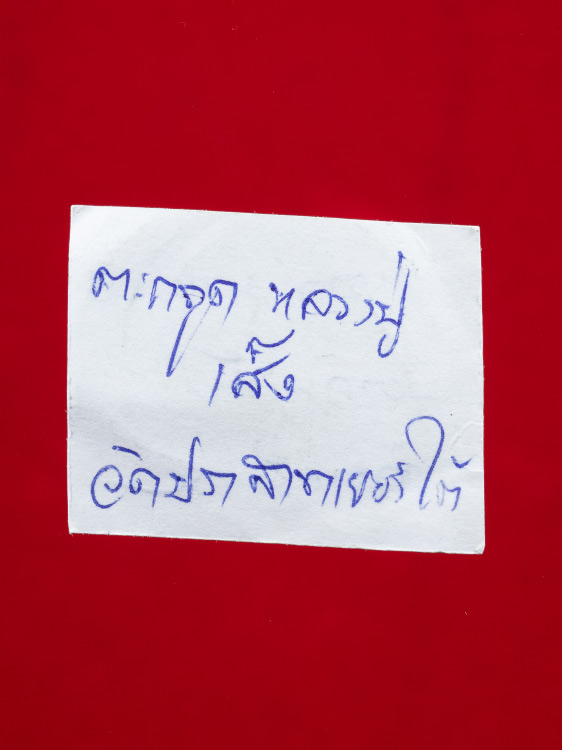 ตะกรุด หลวงปู่
เส็ง
วัดปราสาทเยอร์ใต้